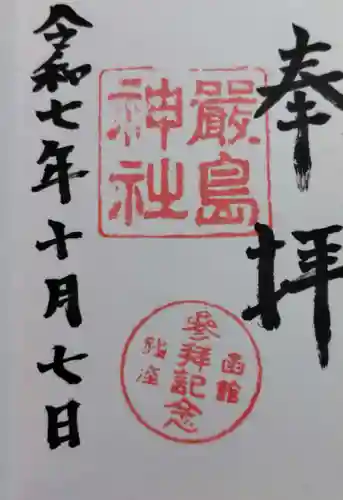 奉拝
嚴島
神社
函館
參拜記念
令和七年十月七日